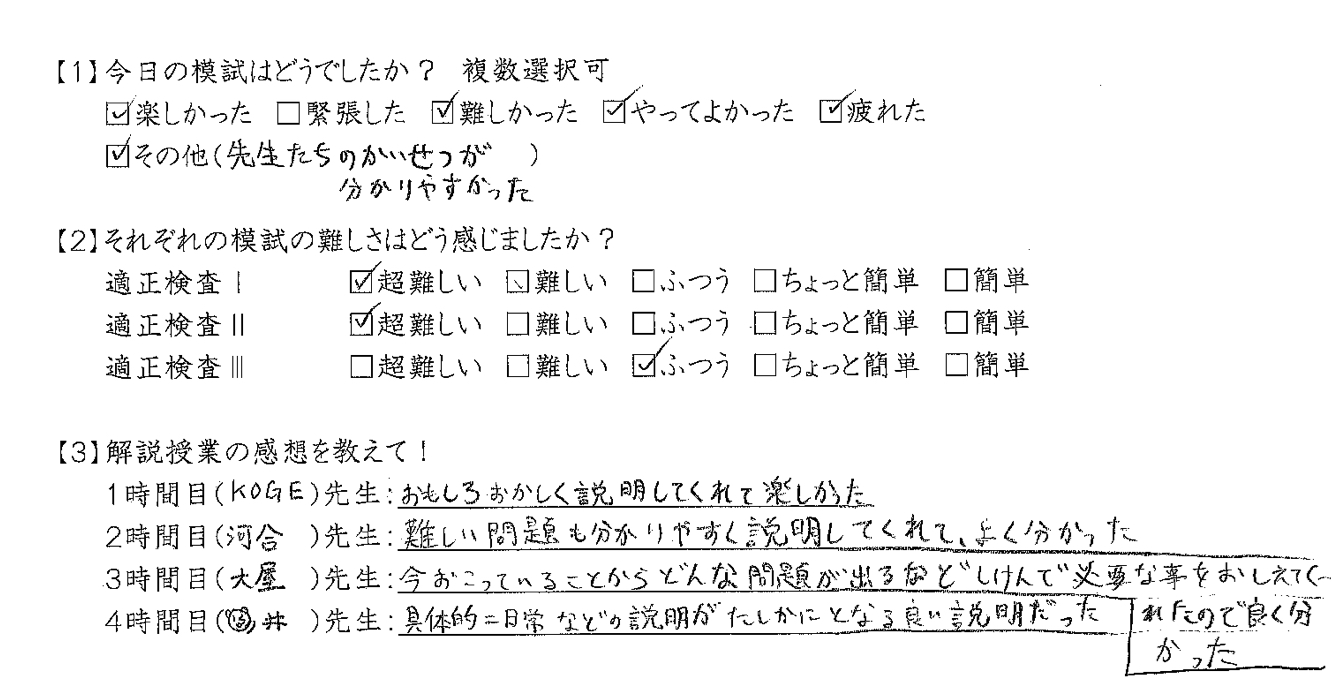 【1】今日の模試はどうでしたか？ 複数選択可
☑楽しかった □緊張した ☑難しかった ☑やってよかった ☑疲れた
☑その他(先生たちのかいせつが )
分かりやすかった
【2】それぞれの模試の難しさはどう感じましたか？
適正検査Ⅰ ☑超難しい ☑難しい □ふつう □ちょっと簡単 □簡単
適正検査Ⅱ ☑超難しい □難しい □ふつう □ちょっと簡単 □簡単
適正検査Ⅲ □超難しい □難しい ☑ふつう □ちょっと簡単 □簡単
【3】解説授業の感想を教えて！
1時間目(KOGE)先生:おもしろおかしく説明してくれて楽しかった
2時間目(河合 )先生:難しい問題も分かりやすく説明してくれて、よく分かった
3時間目(大屋 )先生:今おこっていることからどんな問題が出るなどしけんで必要な事をおしえてく
れたので良く分
かった
4時間目( 井 )先生:具体的=日常などの説明がたしかにとなる良い説明だった